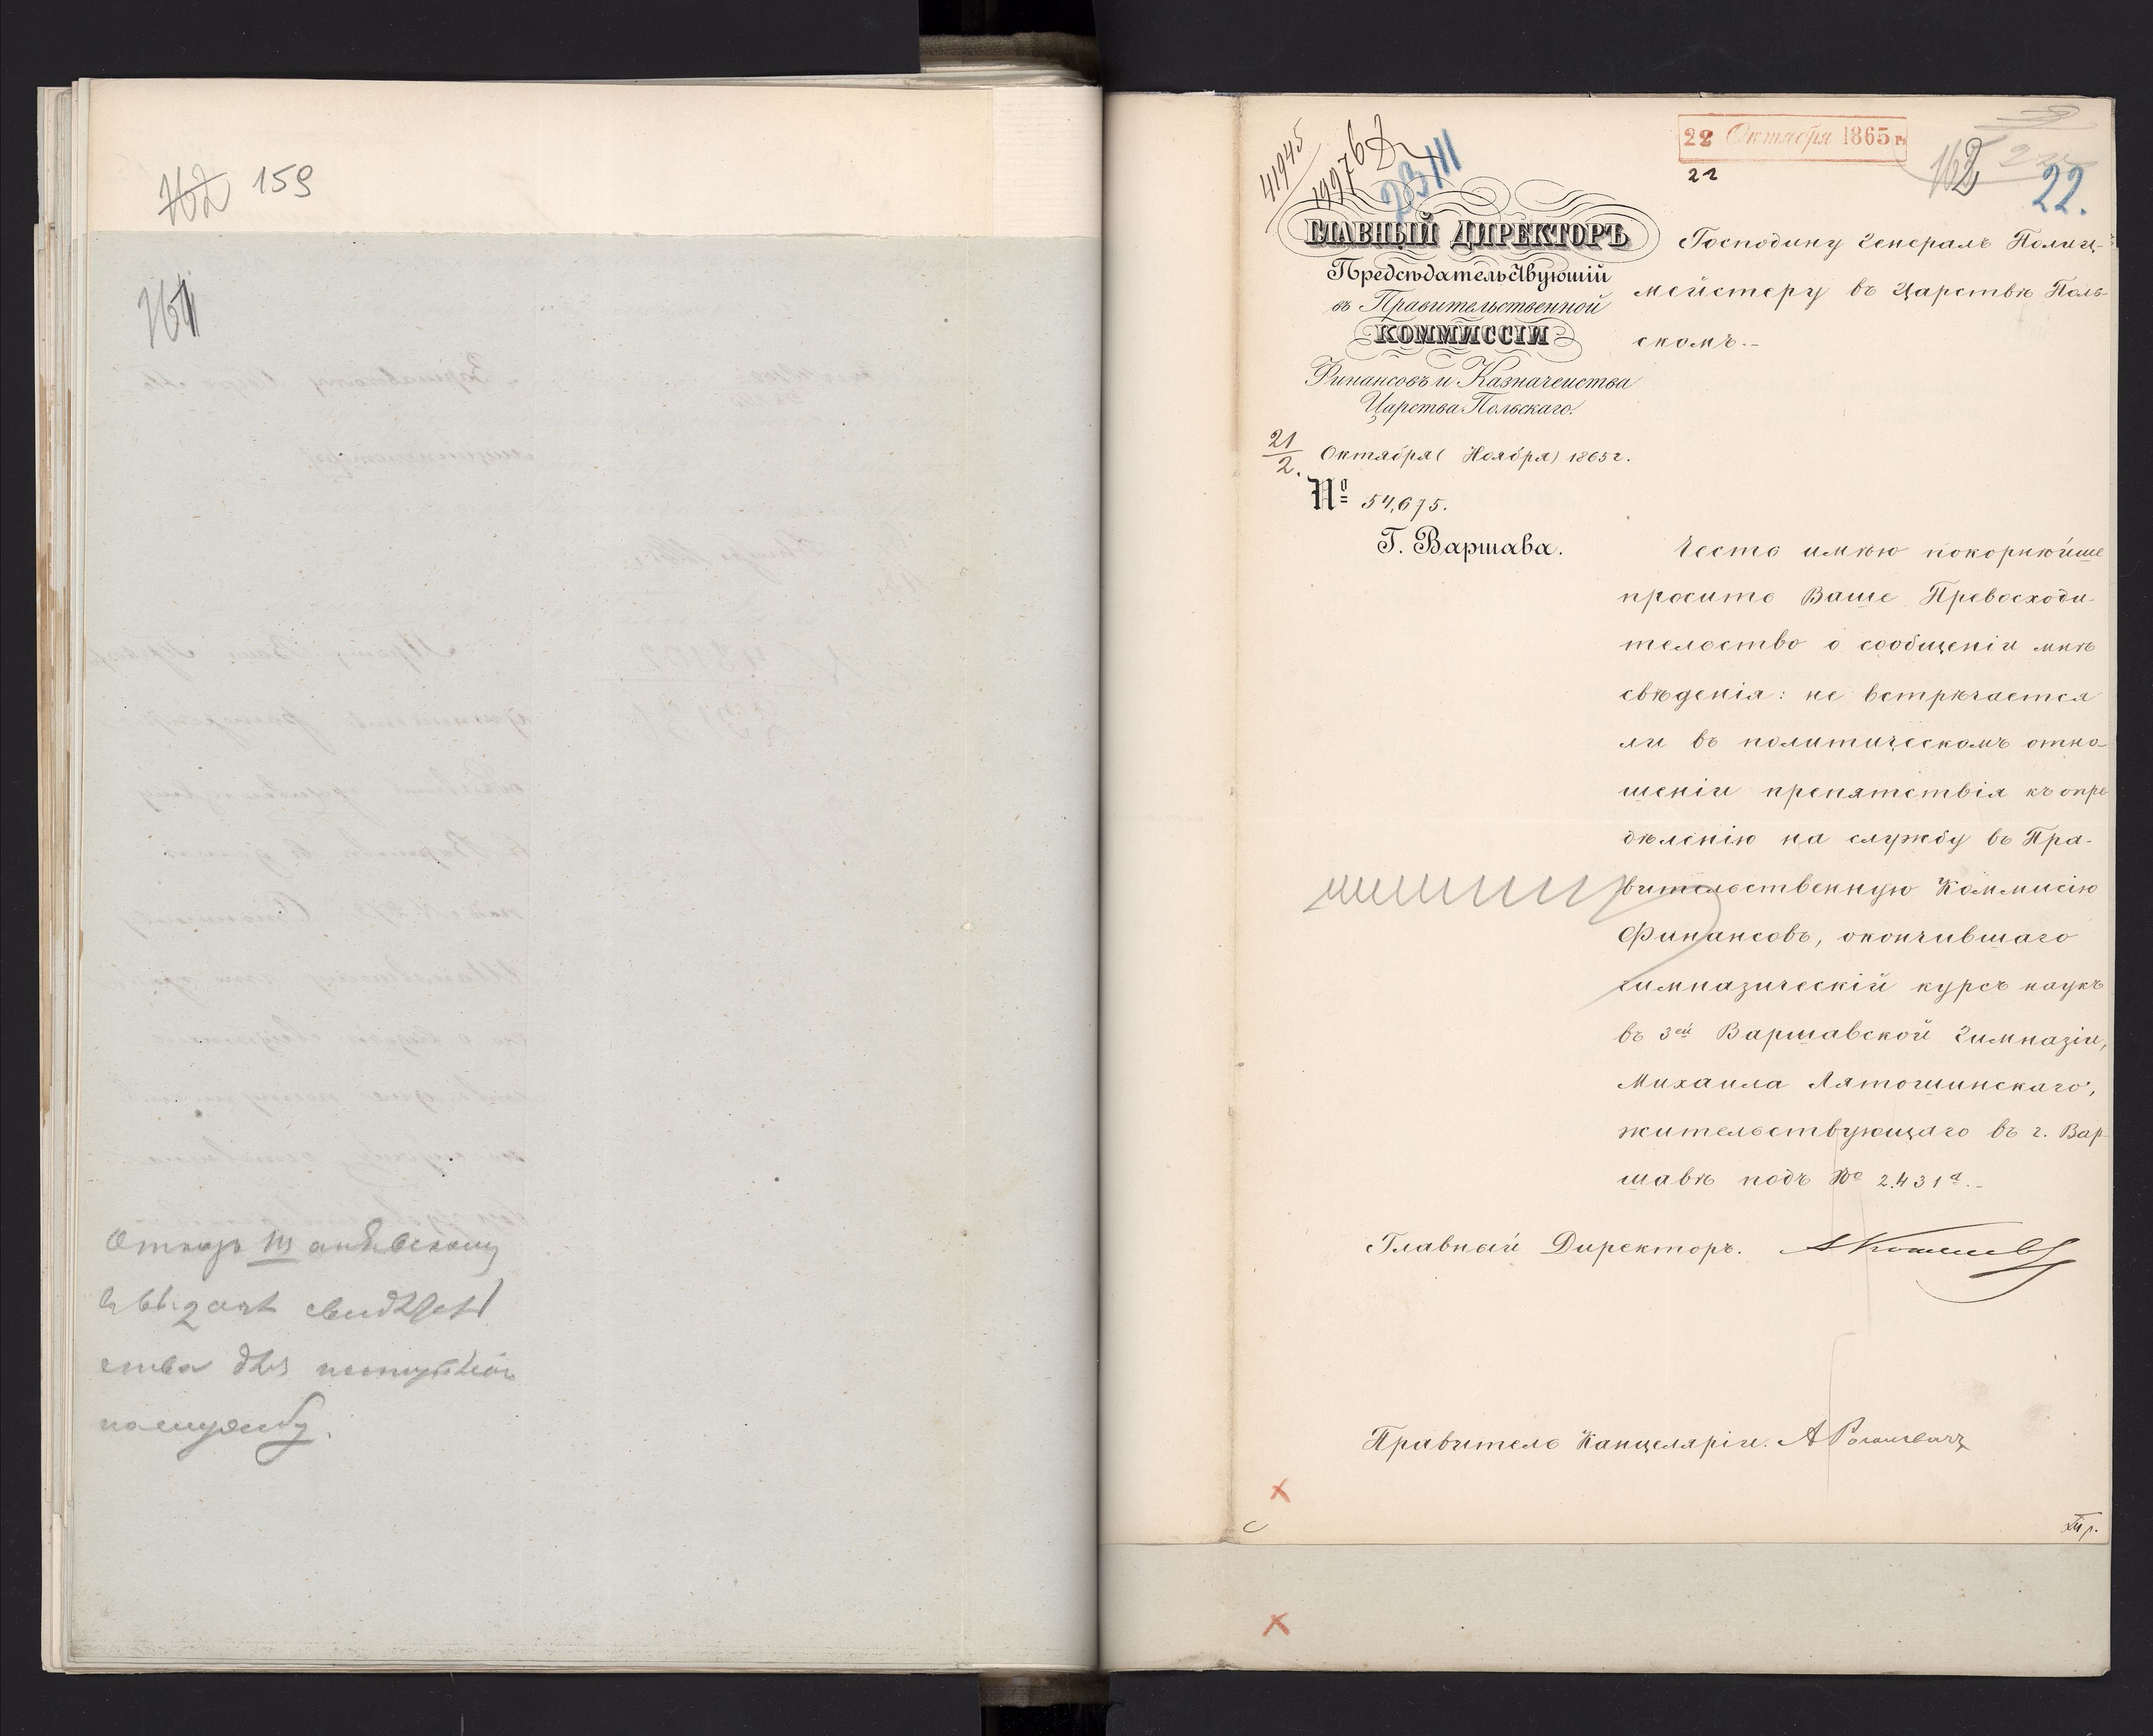 162 159
161
Отказъ Ш анявскому
въ выдачѣ свидѣтель
ства для поступленія
на службу.
41945
19976
23/III
22 Октября 1865 г.
22
162
22.
ГЛАВНЫЙ ДИРЕКТОРЪ
Предсѣдательствующій
въ Правительственной
КОММИССІИ
Финансовъ и Казначейства
Царства Польскаго.
21/2. Октября (Ноября) 1865 г.
№ 54,675.
Г. Варшава.
Господину Генералъ Полиц-
мейстеру въ Царствѣ Поль-
скомъ.-
Честь имѣю покорнѣйше
просить Ваше Превосходи-
тельство о сообщеніи мнѣ
свѣденія: не встрѣчается
ли въ политическомъ отно-
шеніи препятствія къ опре-
дѣленію на службу въ Пра-
вительственную Коммисію
Финансовъ, окончившаго
гимназическій курсъ наукъ
въ 3ей Варшавской Гимназіи,
Михаила Лятошинскаго,
жительствующаго въ г. Вар-
шавѣ подъ № 2.431а.-
Главный Директоръ. АКошелевъ
Правитель Канцеляріи. А